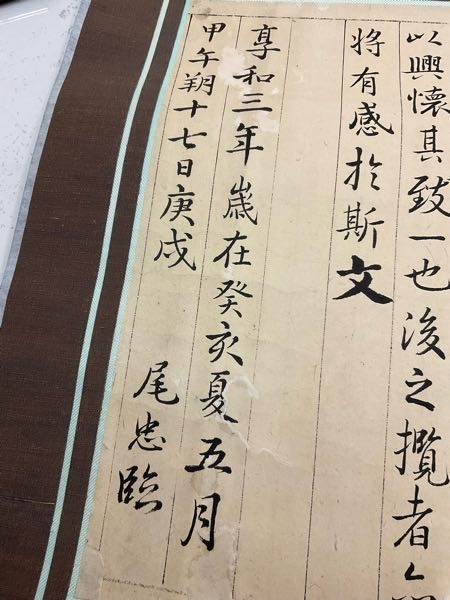 以興懷其致一也後之攬者亽
將有感於斯文
享和三年歲在癸亥夏五月
甲午朔十七日庚戌
尾忠臨